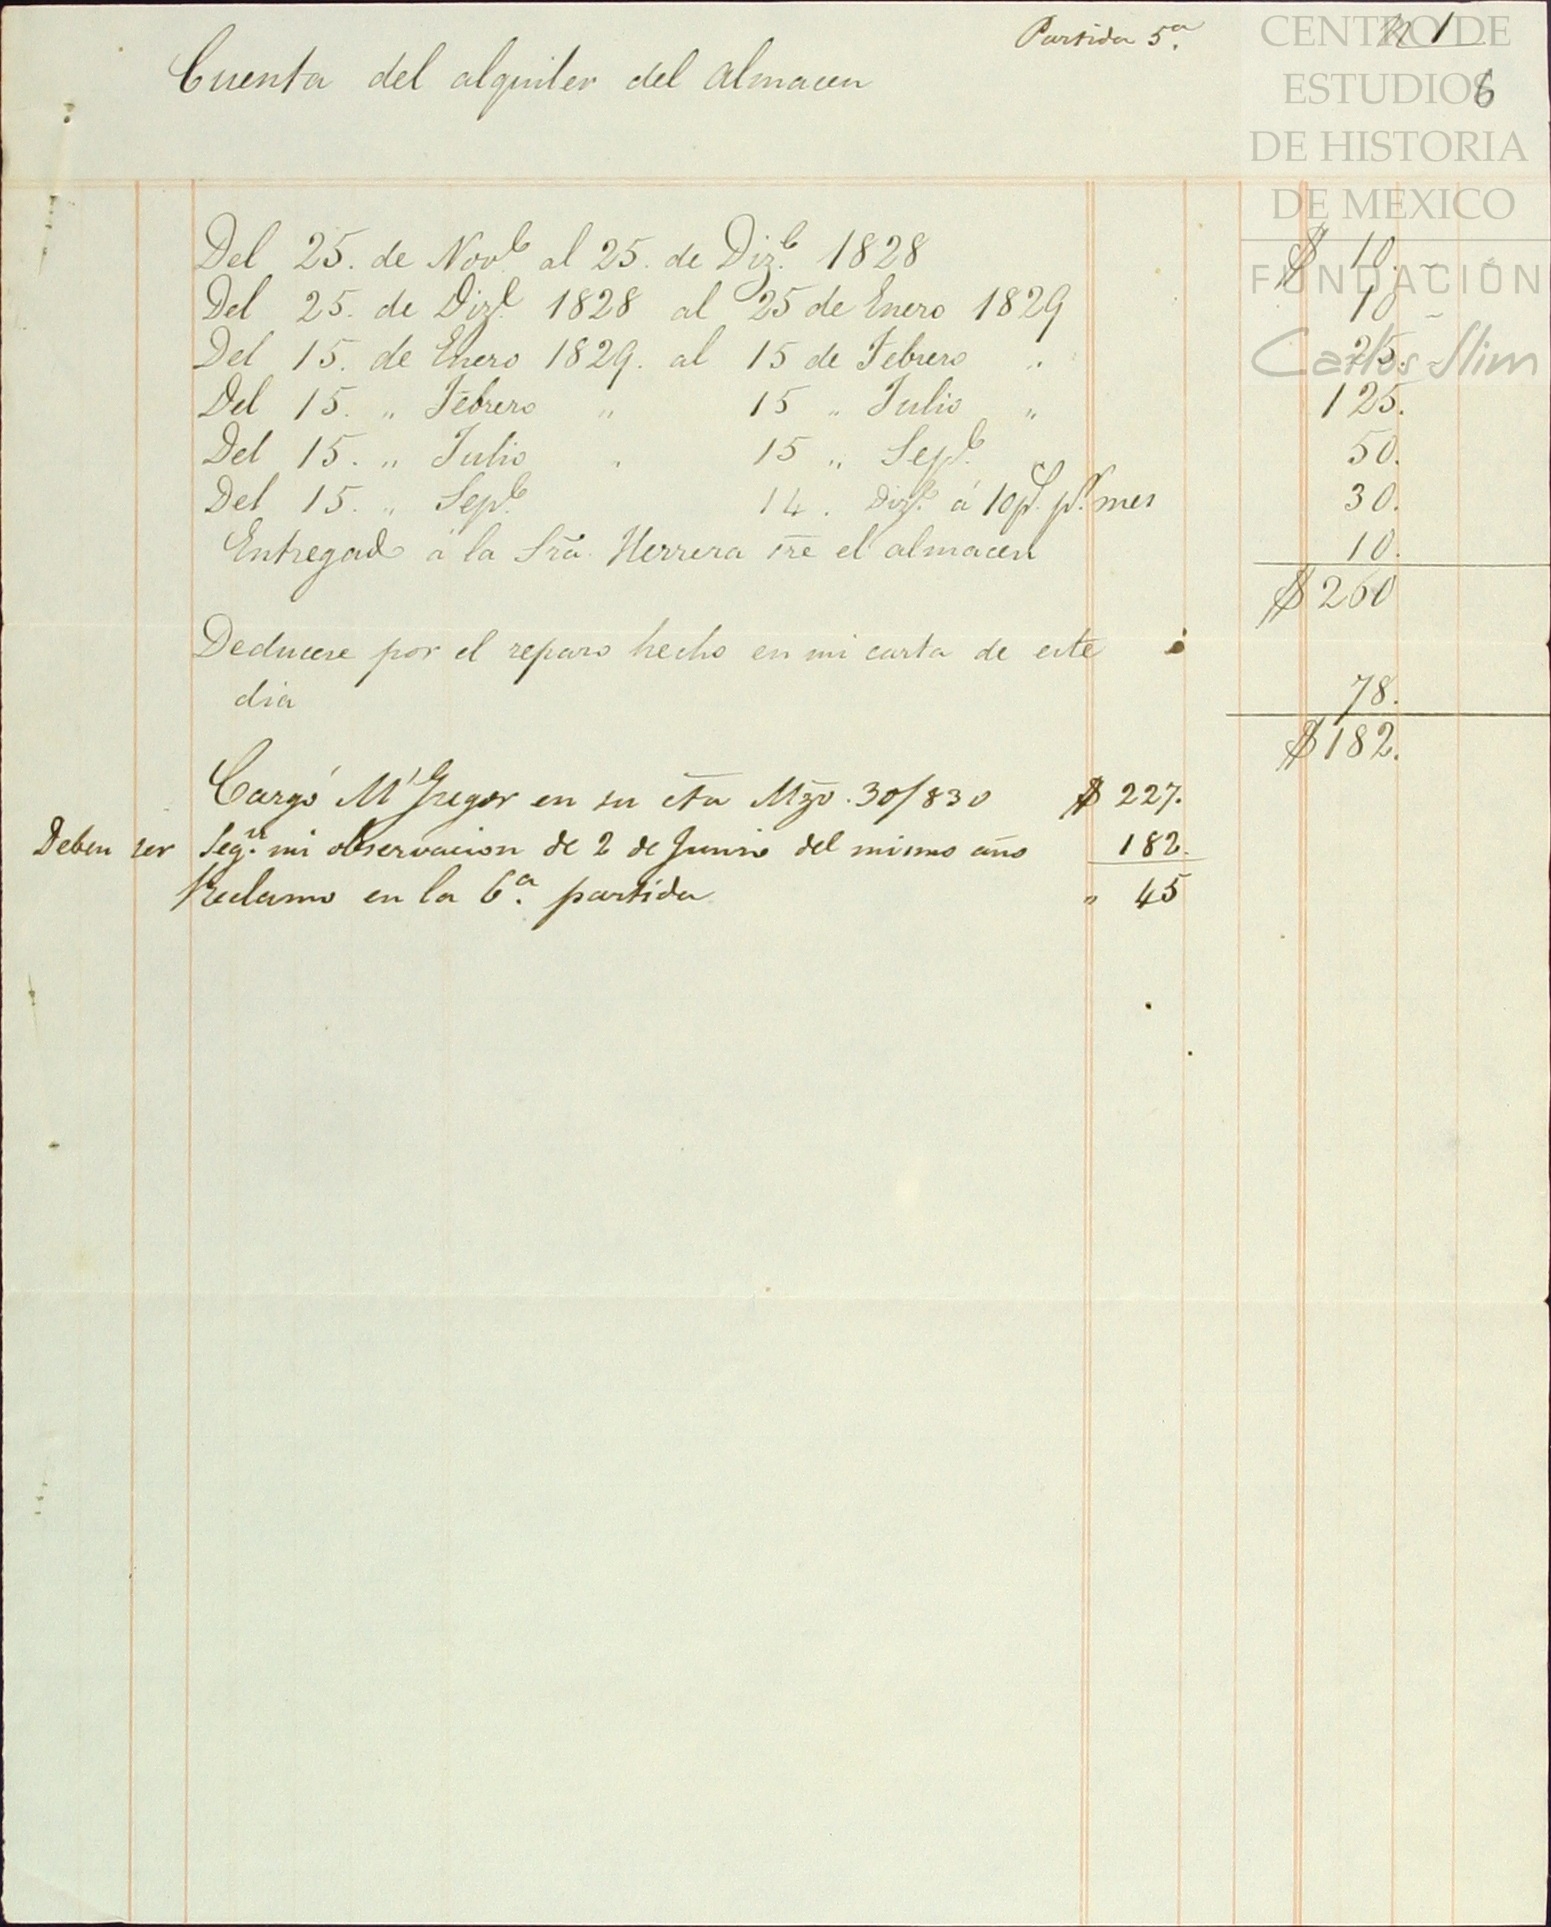 Partida 5ª. N 1
6
Cuenta del alquiler del almacen
CENTRO DE
ESTUDIOS
DE HISTORIA
DE MEXICO
FUNDACIÓN
Carlos Slim
Del 25. de Novb. al 25. de Dizb. 1828 $ 10. -
Del 25. de Dizb. 1828 al 25 de Enero 1829 10 -
Del 15. de Enero 1829. al 15 de Febrero " 25.
Del 15. " Febrero " 15 " Julio " 125.
Del 15. " Julio " 15 " Sepb. 50.
Del 15. " Sepb. 14. Dizb. á 10 ps. pr. mes 30.
Entregado a la Sra. Herrera el almacen 10.
$ 260
Deducese por el reparo hecho en mi carta de este
dia 78.
$ 182.
Cargó McGregor en su cta Mzo. 30/830 $ 227.
Deben ser segn. mi observacion de 2 de Junio del mismo año 182.
Reclamo en la 6ª. partida " 45